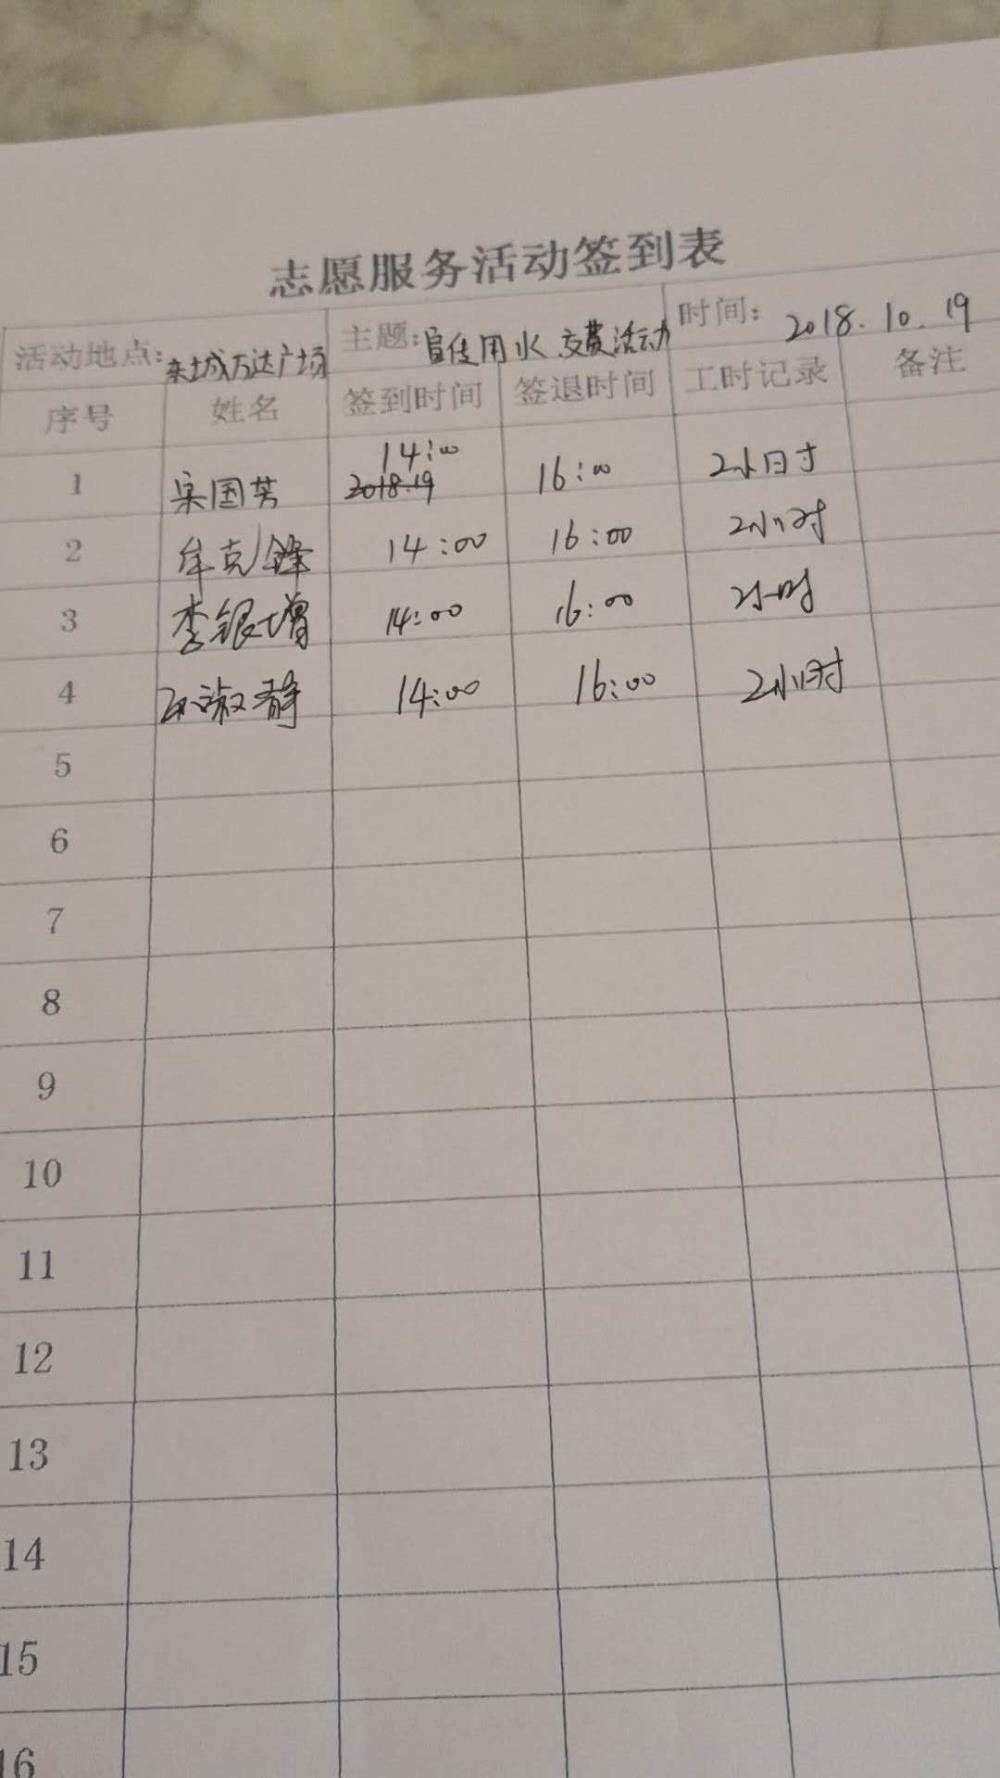 志愿服务活动签到表
活动地点:来城万达广场 主题:宣传用水交费活动 时间: 2018.10.19
序号 姓名 签到时间 签退时间 工时记录 备注
14:00
1 国芳 2018.19 16:00 2小时
2 牟克锋 14:00 16:00 2小时
3 李银增 14:00 16:00 2小时
4 孙淑静 14:00 16:00 2小时
5
6
7
8
9
10
11
12
13
14
15
16